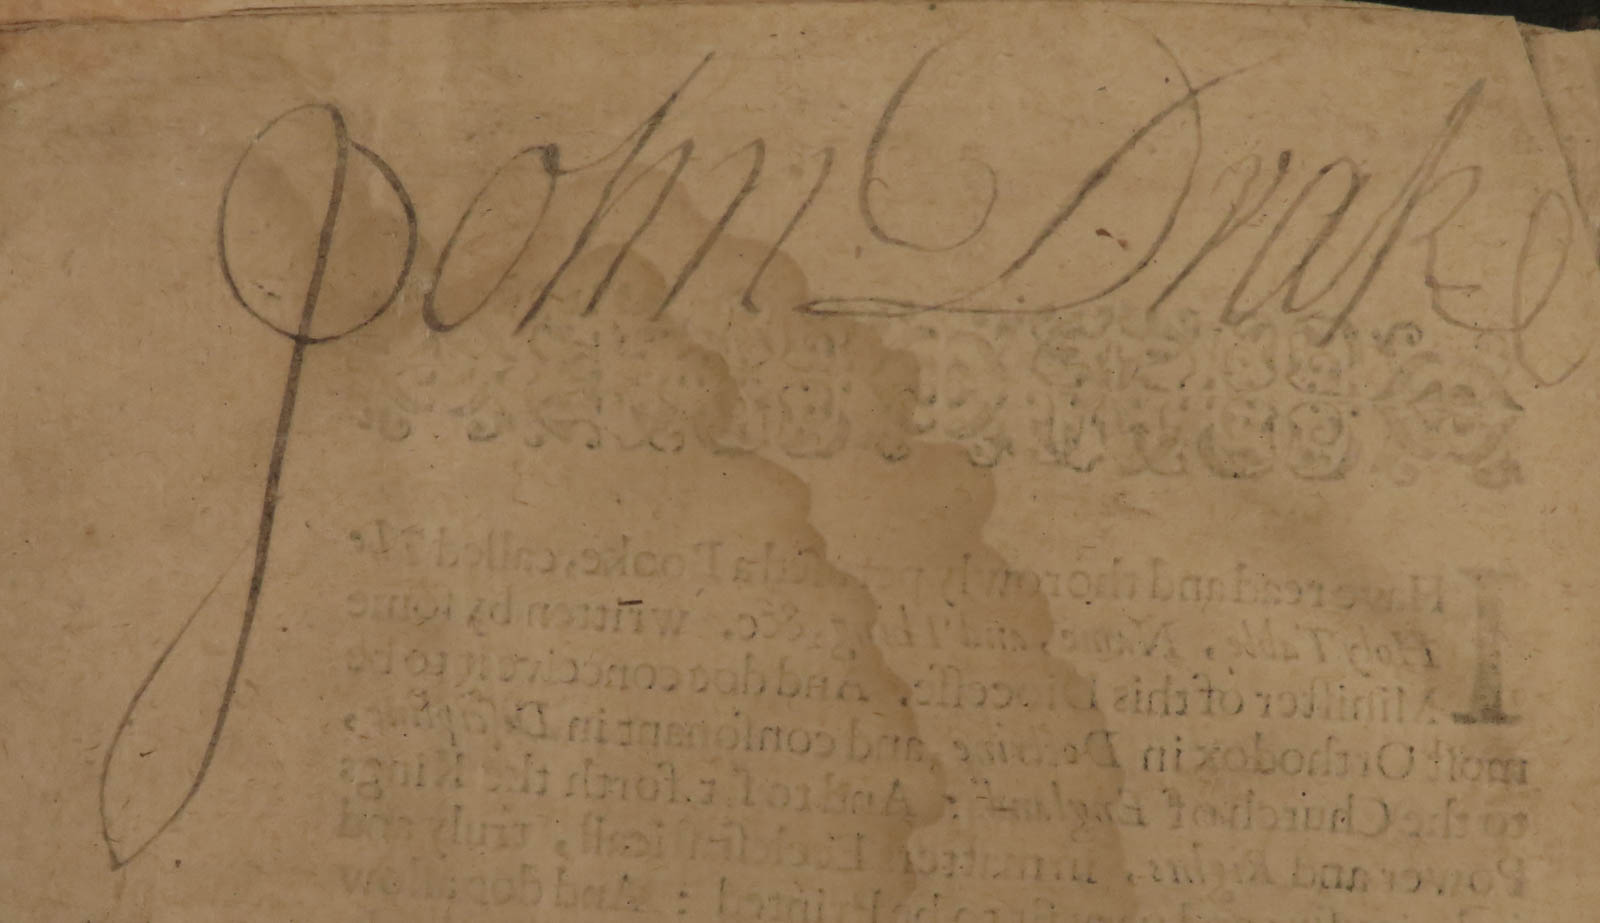 John Drake
I Have read and thorowly perused a Booke, called The
Holy Table, Name, and Thing, &c. written by some
Minister of this Diocesse. And doe conceive it to be
most Orthodox in Doctrine, and consonant in Discipline,
to the Church of England: And to set forth the Kings
Power and Rights, in matters Ecclesiasticall, truly and
to be Printed: And doe allow